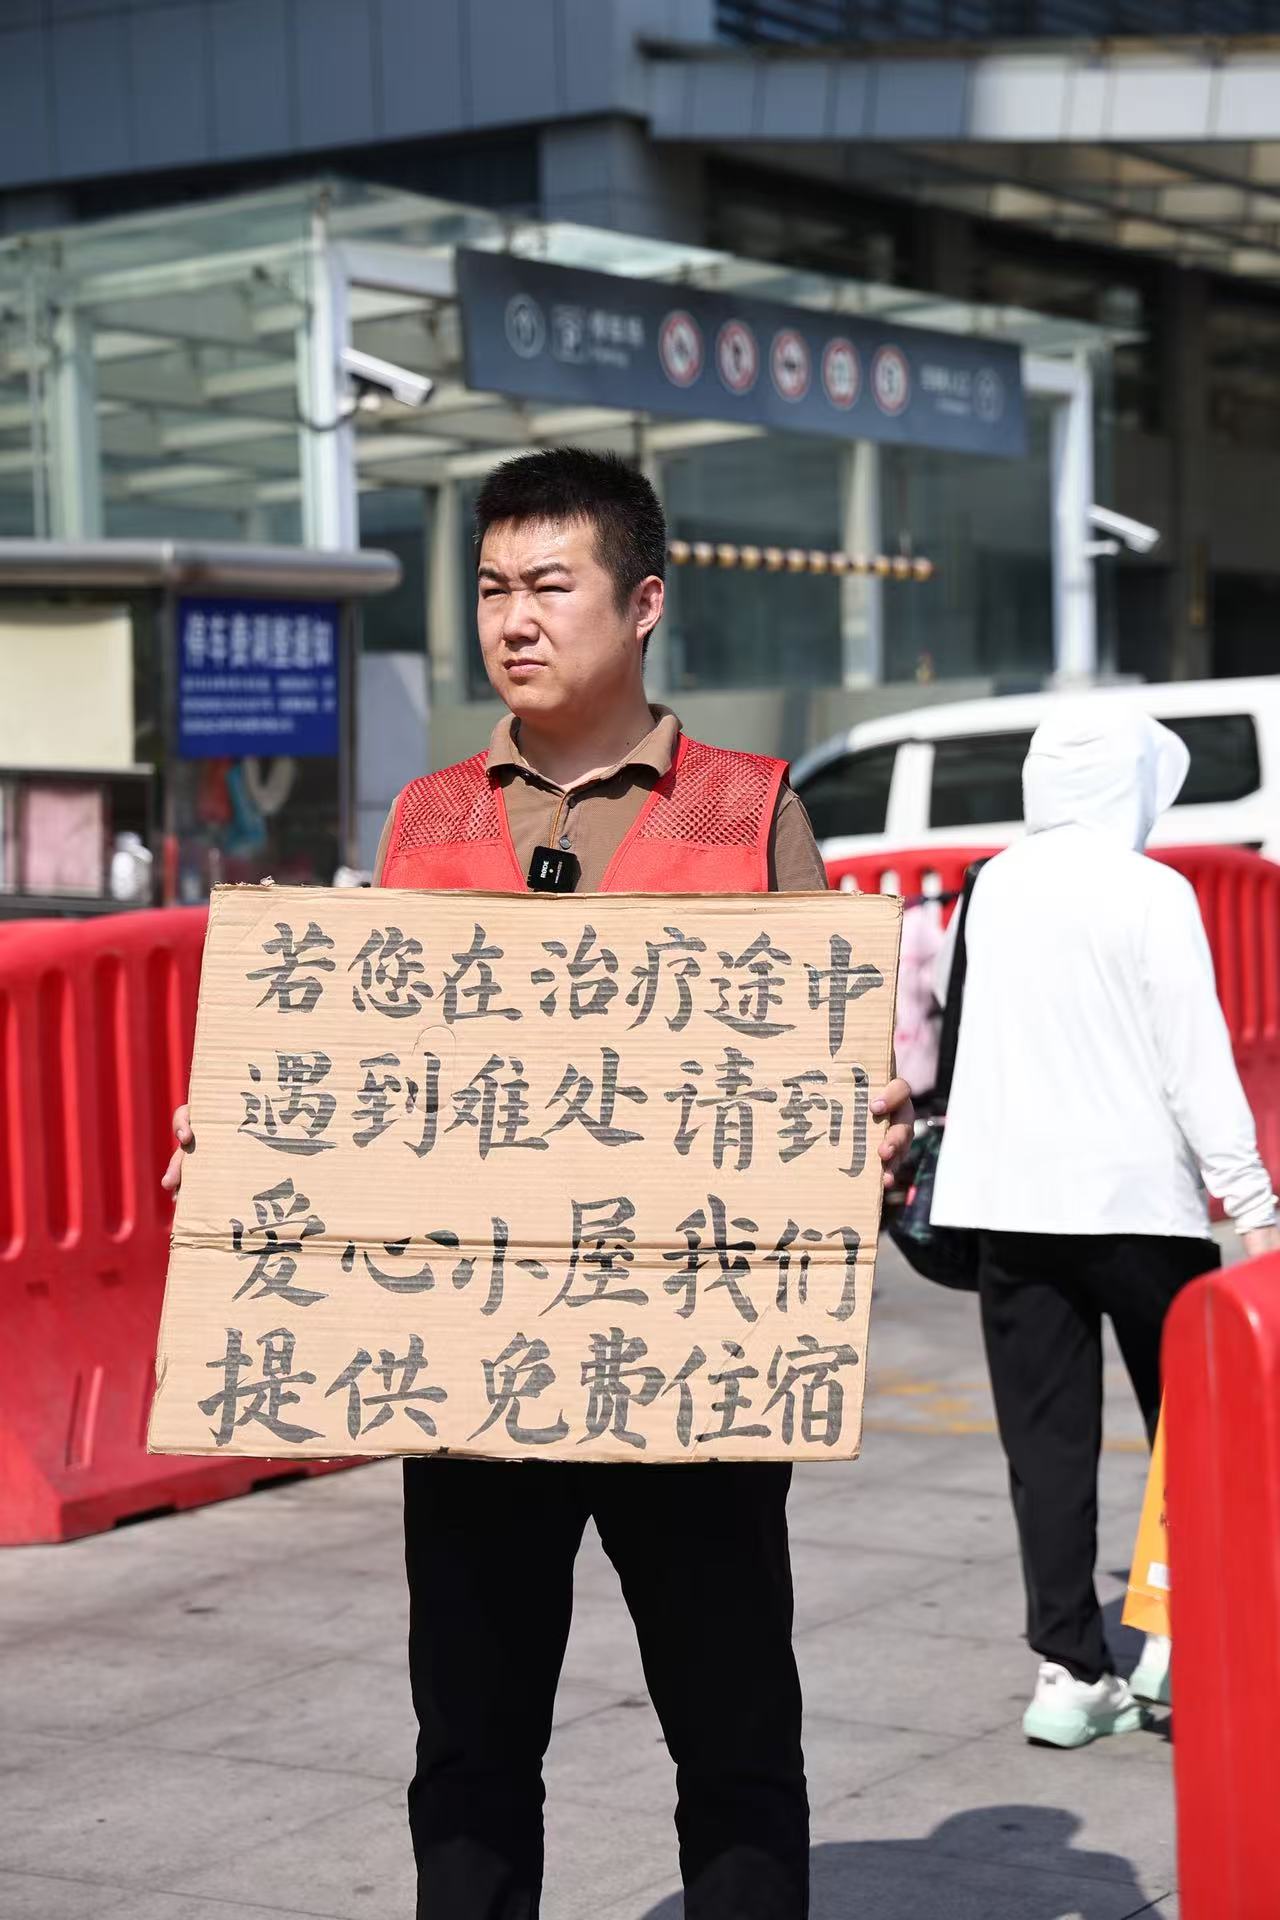 停车费调整通知
RODE
若您在治疗途中
遇到难处请到
爱心小屋我们
提供免费住宿